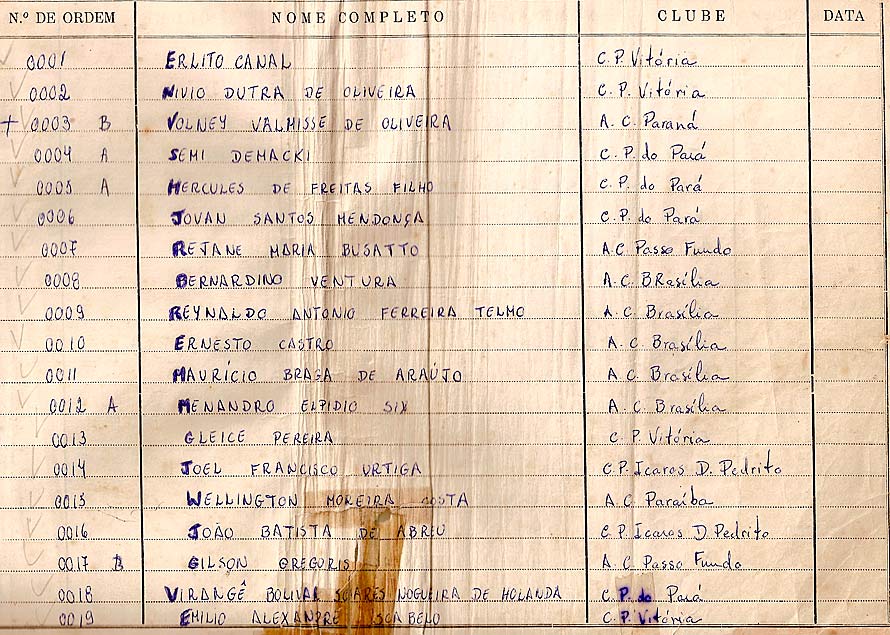 N.º DE ORDEM NOME COMPLETO CLUBE DATA
0001 ERLITO CANAL C. P. Vitória
0002 NIVIO DUTRA DE OLIVEIRA C. P. Vitória
+ 0003 B VOLNEY VALMISSE DE OLIVEIRA A. C. Paraná
0004 A SEMI DEMACKI C. P. do Pará
0005 A HERCULES DE FREITAS FILHO C. P. do Pará
0006 JOVAN SANTOS MENDONÇA C. P. do Pará
0007 REJANE MARIA BUSATTO A.C. Passo Fundo
0008 BERNARDINO VENTURA A. C. BRasília
0009 REYNALDO ANTONIO FERREIRA TELMO A. C. Brasília
0010 ERNESTO CASTRO A. C. Brasília
0011 MAURÍCIO BRAGA DE ARAÚJO A. C. Brasília
0012 A MENANDRO ELPIDIO SIX A. C. Brasília
0013 GLEICE PEREIRA C. P. Vitória
0014 JOEL FRANCISCO URTIGA C. P. Icaros D. Pedrito
0015 WELLINGTON MOREIRA COSTA A. C. Paraíba
0016 JOÃO BATISTA DE ABREU C. P. Icaros D Pedrito
0017 B GILSON GREGORIS A. C. Passo Fundo
0018 VIRANGÊ BOLIVAR SOARES NOGUEIRA DE HOLANDA C. P. do Pará
0019 EMILIO ALEXANDRE C. P. Vitória